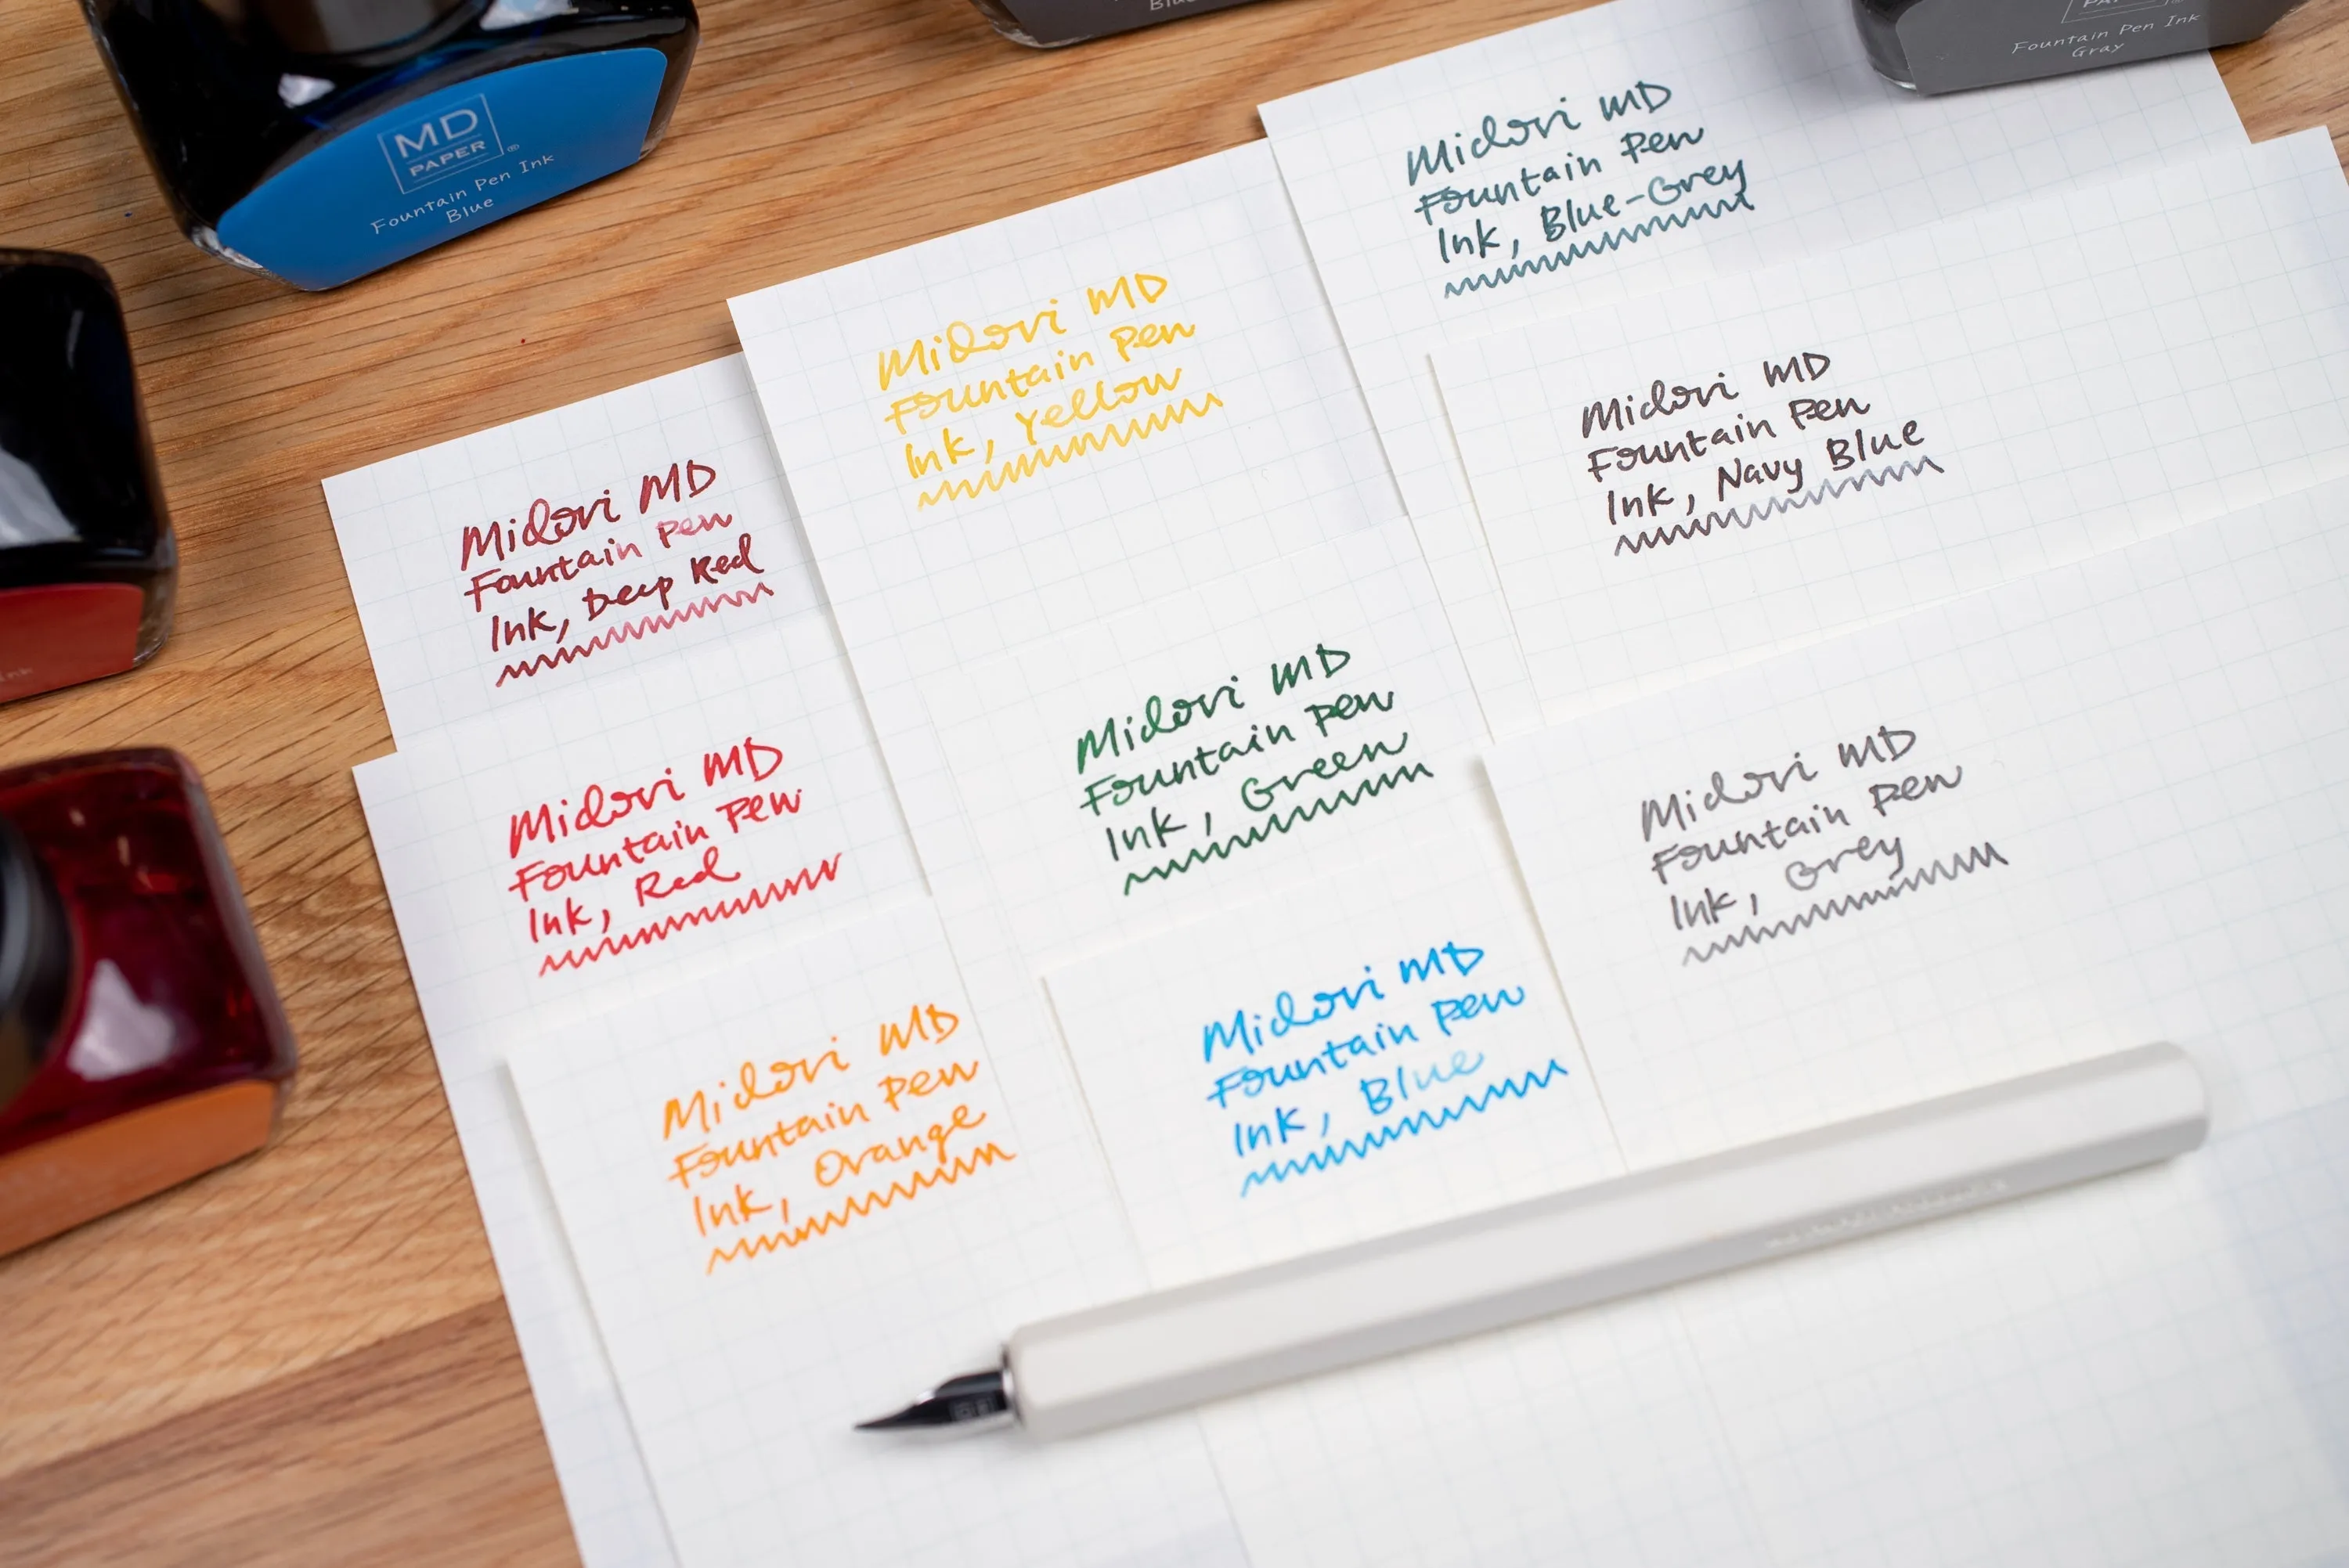 MD
PAPER®
Fountain Pen Ink
Blue
Fountain Pen Ink
Gray
Midori MD
Fountain Pen
Ink, Blue-Grey
Midori MD
Fountain Pen
Ink, Yellow
Midori MD
Fountain Pen
Ink, Navy Blue
Midori MD
Fountain Pen
Ink, Deep Red
Midori MD
Fountain Pen
Ink, Green
Midori MD
Fountain Pen
Ink, Red
Midori MD
Fountain Pen
Ink, Grey
Midori MD
Fountain Pen
Ink, Blue
Midori MD
Fountain Pen
Ink, Orange